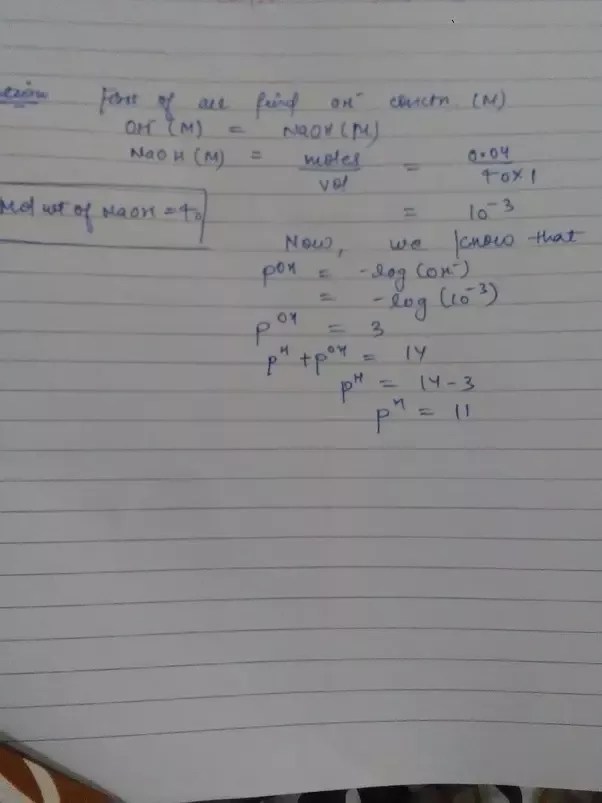 First of all find OH⁻ conctn (M)
OH⁻ (M) = NaOH (M)
NaOH (M) = moles / vol = 0.04 / 40×1
Mol wt of NaOH = 40
= 10⁻³
Now, we know that
pOH = -log (OH⁻)
= -log (10⁻³)
pOH = 3
pH + pOH = 14
pH = 14 - 3
pH = 11